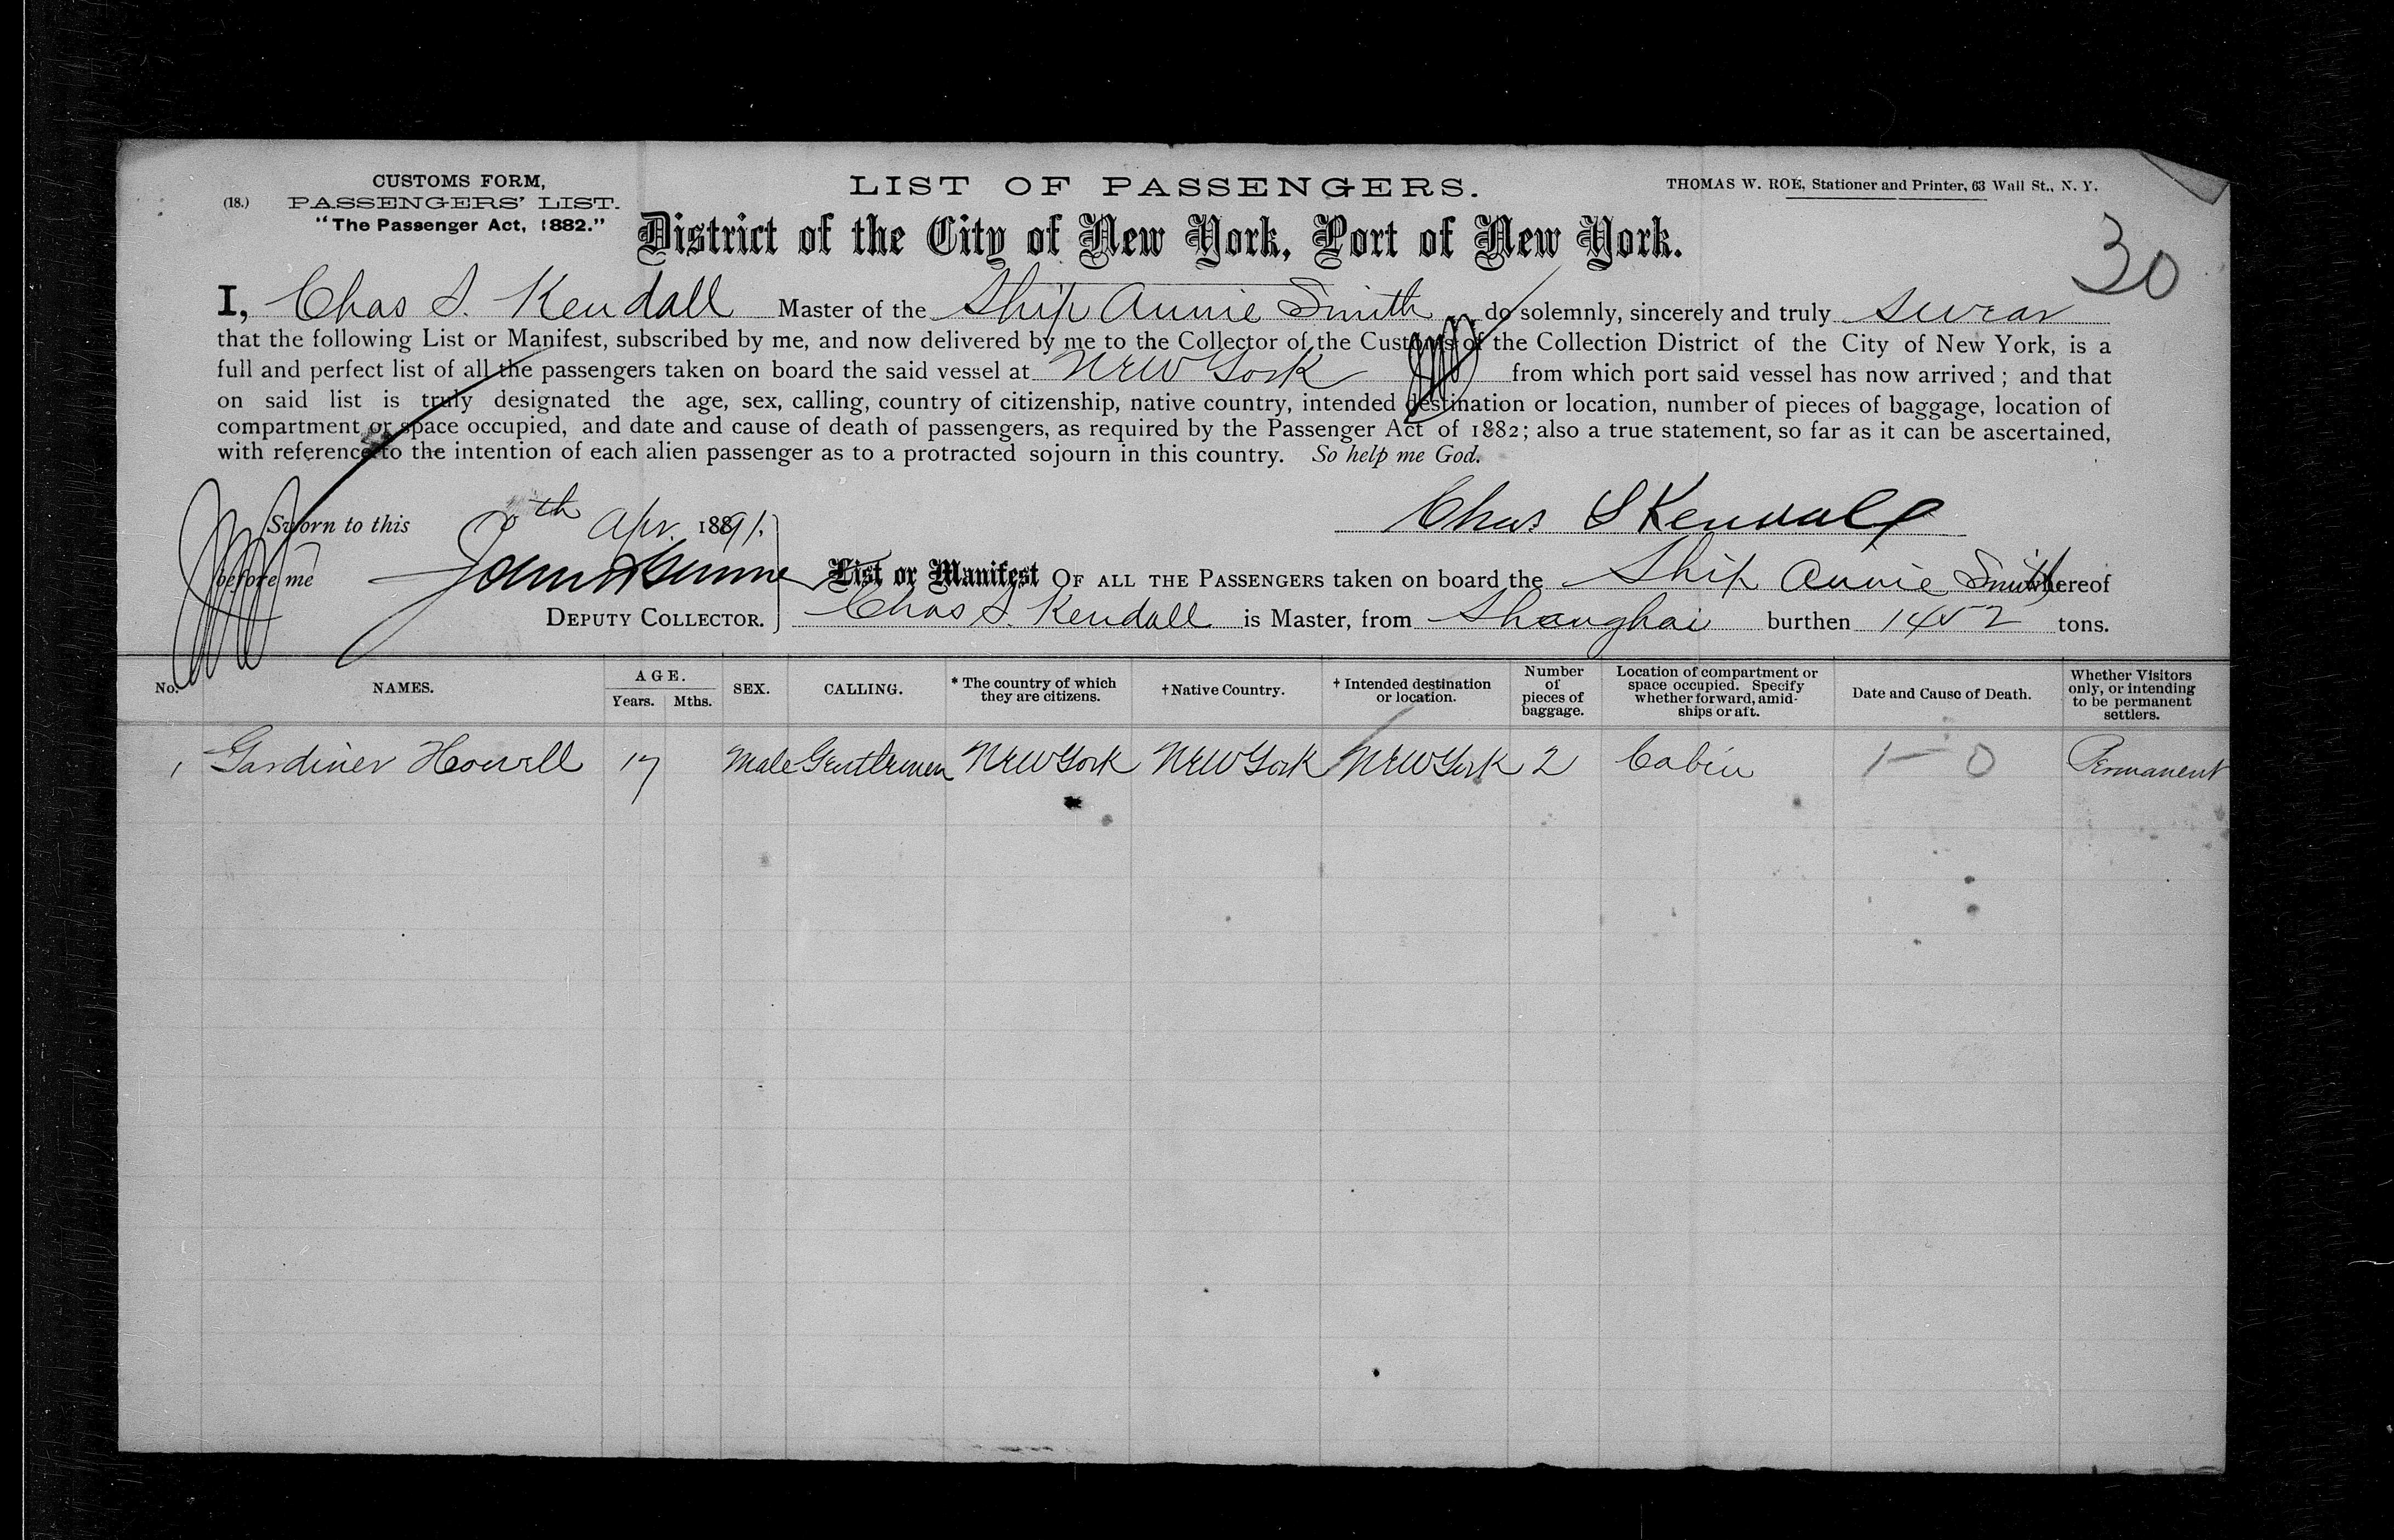 CUSTOMS FORM,
(18.) PASSENGERS' LIST.
"The Passenger Act, 1882."
LIST OF PASSENGERS.
THOMAS W. ROE, Stationer and Printer, 63 Wall St., N. Y.
District of the City of New York, Port of New York.
30
I, Chas S. Kendall Master of the Ship Annie Smith do solemnly, sincerely and truly swear
that the following List or Manifest, subscribed by me, and now delivered by me to the Collector of the Customs of the Collection District of the City of New York, is a
full and perfect list of all the passengers taken on board the said vessel at New York from which port said vessel has now arrived; and that
on said list is truly designated the age, sex, calling, country of citizenship, native country, intended destination or location, number of pieces of baggage, location of
compartment or space occupied, and date and cause of death of passengers, as required by the Passenger Act of 1882; also a true statement, so far as it can be ascertained,
with reference to the intention of each alien passenger as to a protracted sojourn in this country. So help me God.
Sworn to this th Apr. 1891.
Chas S Kendall
before me
DEPUTY COLLECTOR.
List or Manifest OF ALL THE PASSENGERS taken on board the Ship Annie Smith whereof
Chas S. Kendall is Master, from Shanghai burthen 1452 tons.
No. NAMES. AGE. Years. Mths. SEX. CALLING. * The country of which they are citizens. † Native Country. † Intended destination or location. Number of pieces of baggage. Location of compartment or space occupied. Specify whether forward, amidships or aft. Date and Cause of Death. Whether Visitors only, or intending to be permanent settlers.
1 Gardiner Howell 17 Male Gentlemen New York New York New York 2 Cabin 1 - 0 Permanent